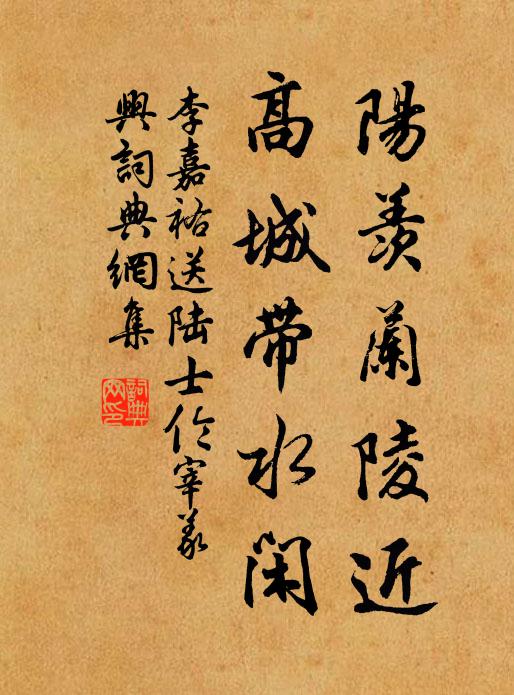 陽羨蘭陵近
高城帶水閑
李嘉祐送陆士伦宰義
興詞典網集
詞典网印